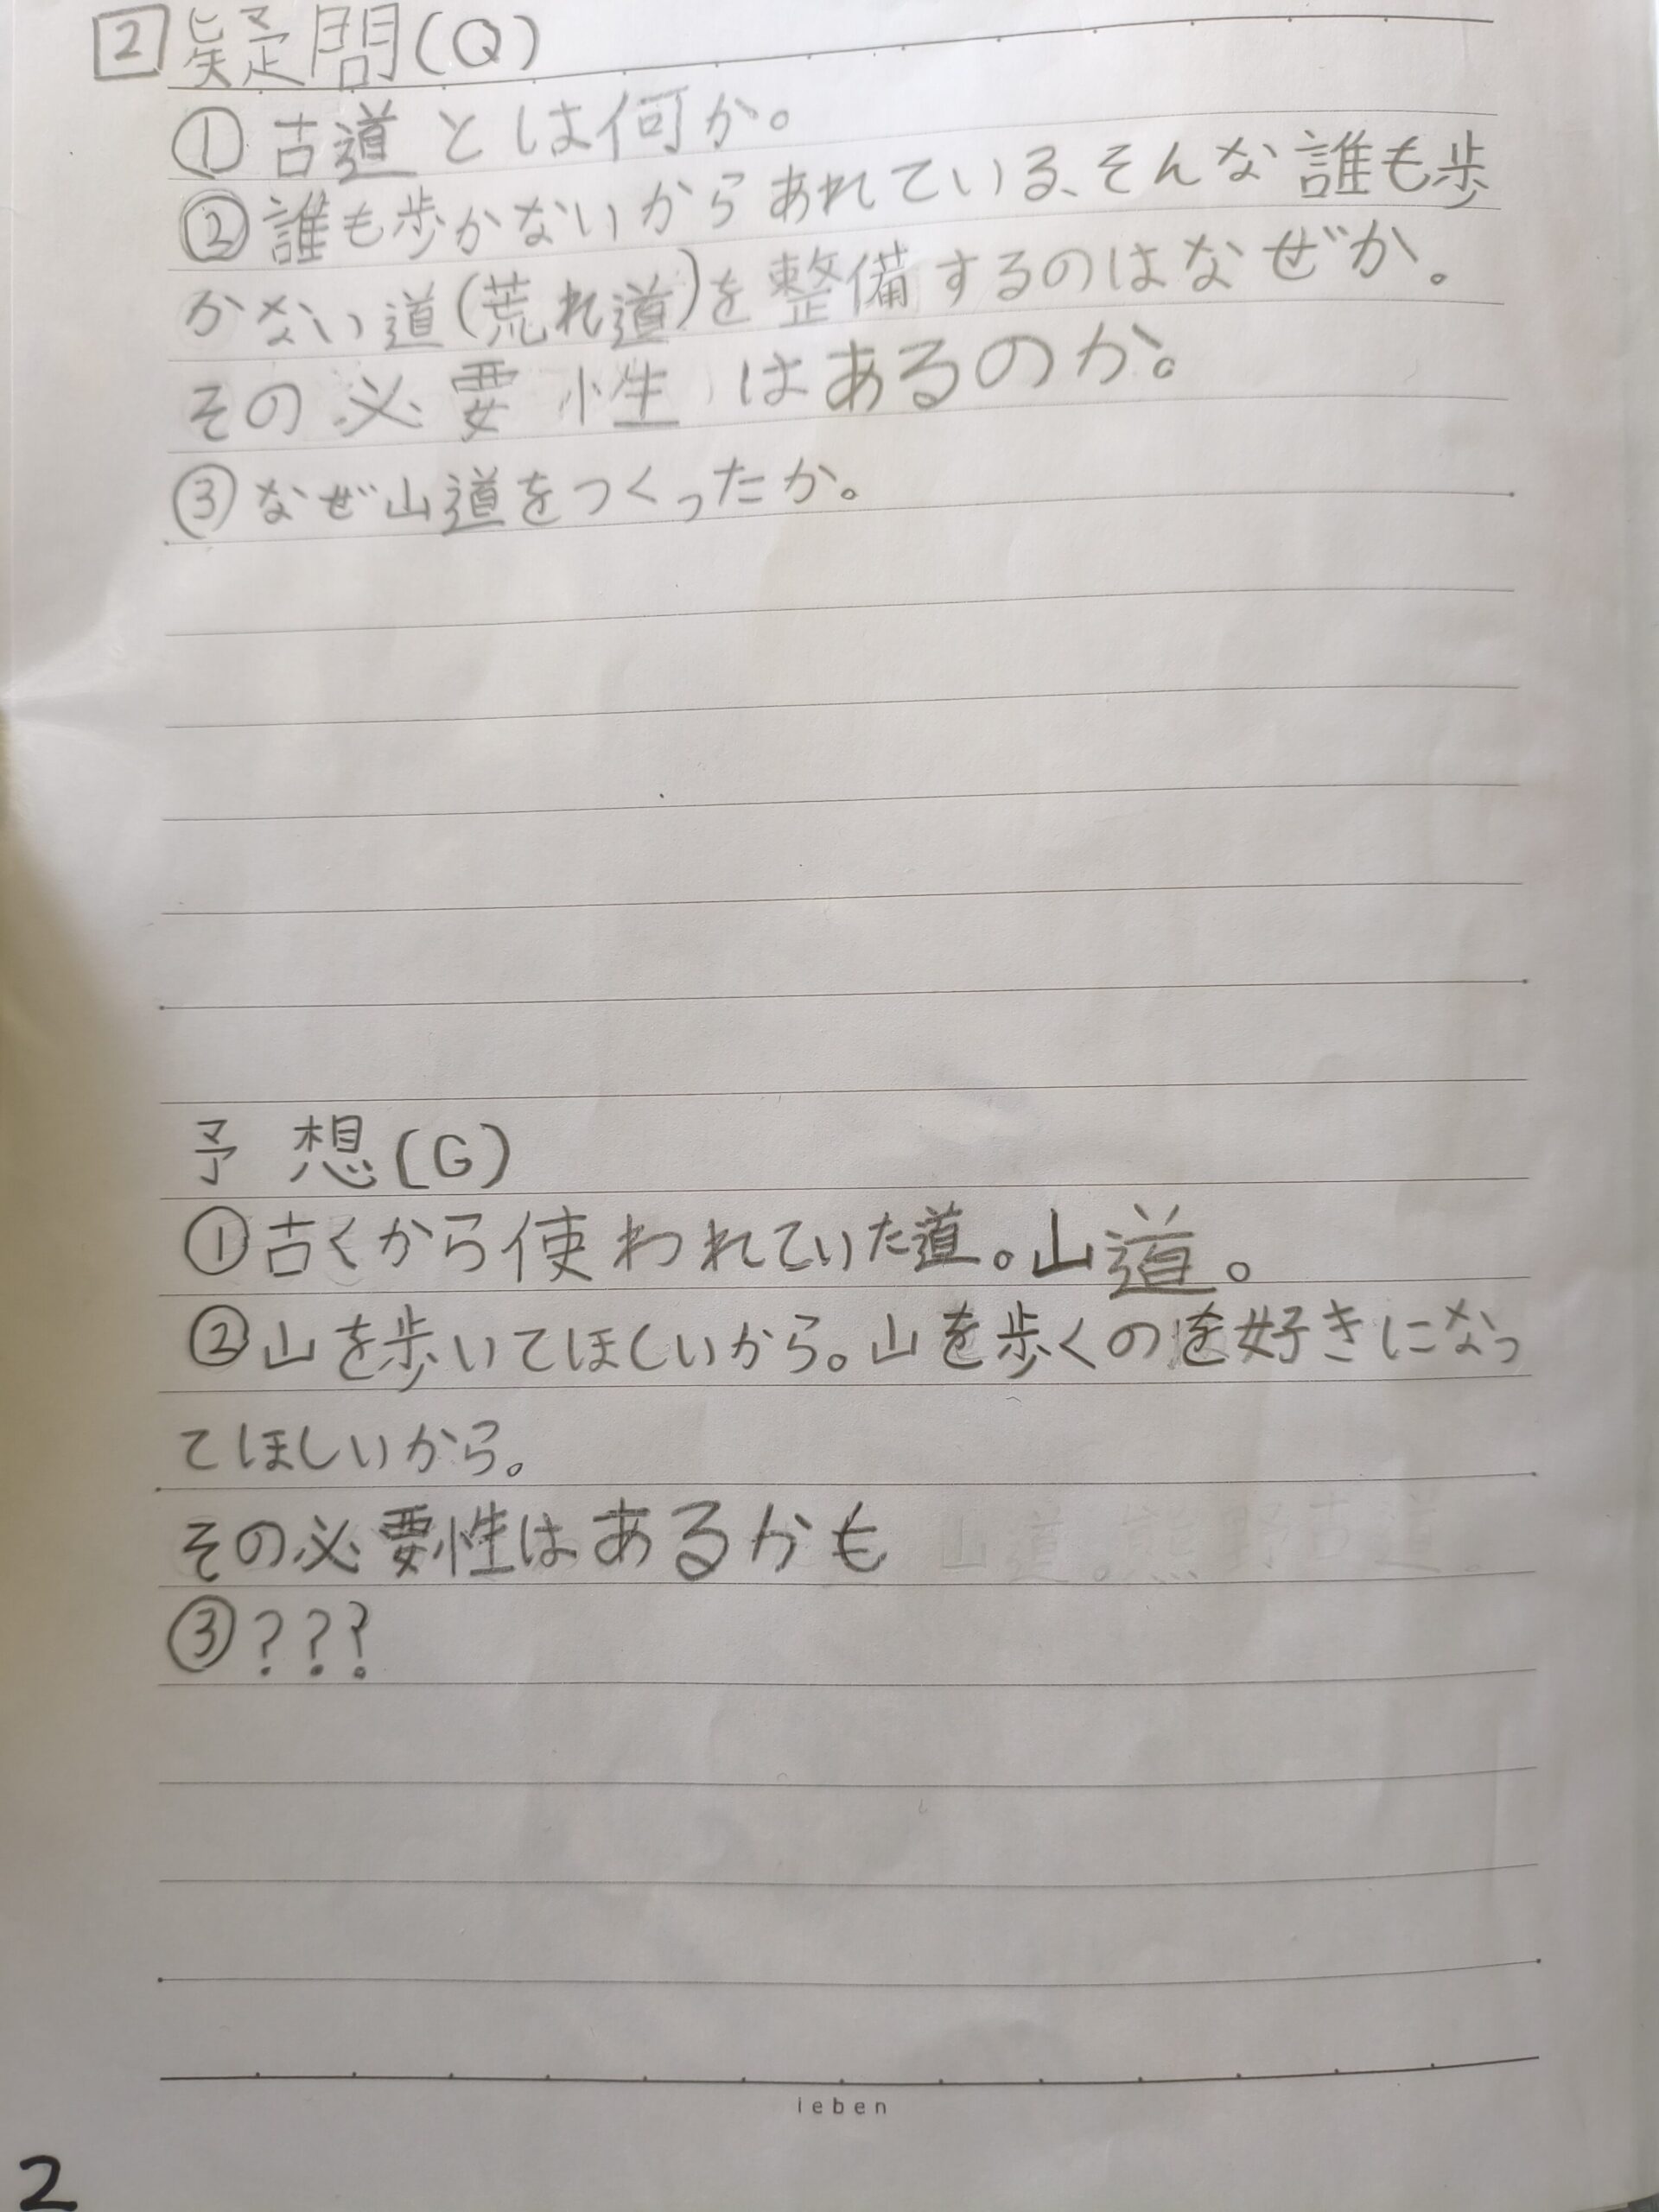 2 疑問(Q)
① 古道とは何か。
② 誰も歩かないからあれている、そんな誰も歩
かない道(荒れ道)を整備するのはなぜか。
その必要性はあるのか。
③ なぜ山道をつくったか。
予想(G)
① 古くから使われていた道。山道。
② 山を歩いてほしいから。山を歩くのを好きになっ
てほしいから。
その必要性はあるかも
山道。熊野古道。
③ ???
ieben
2